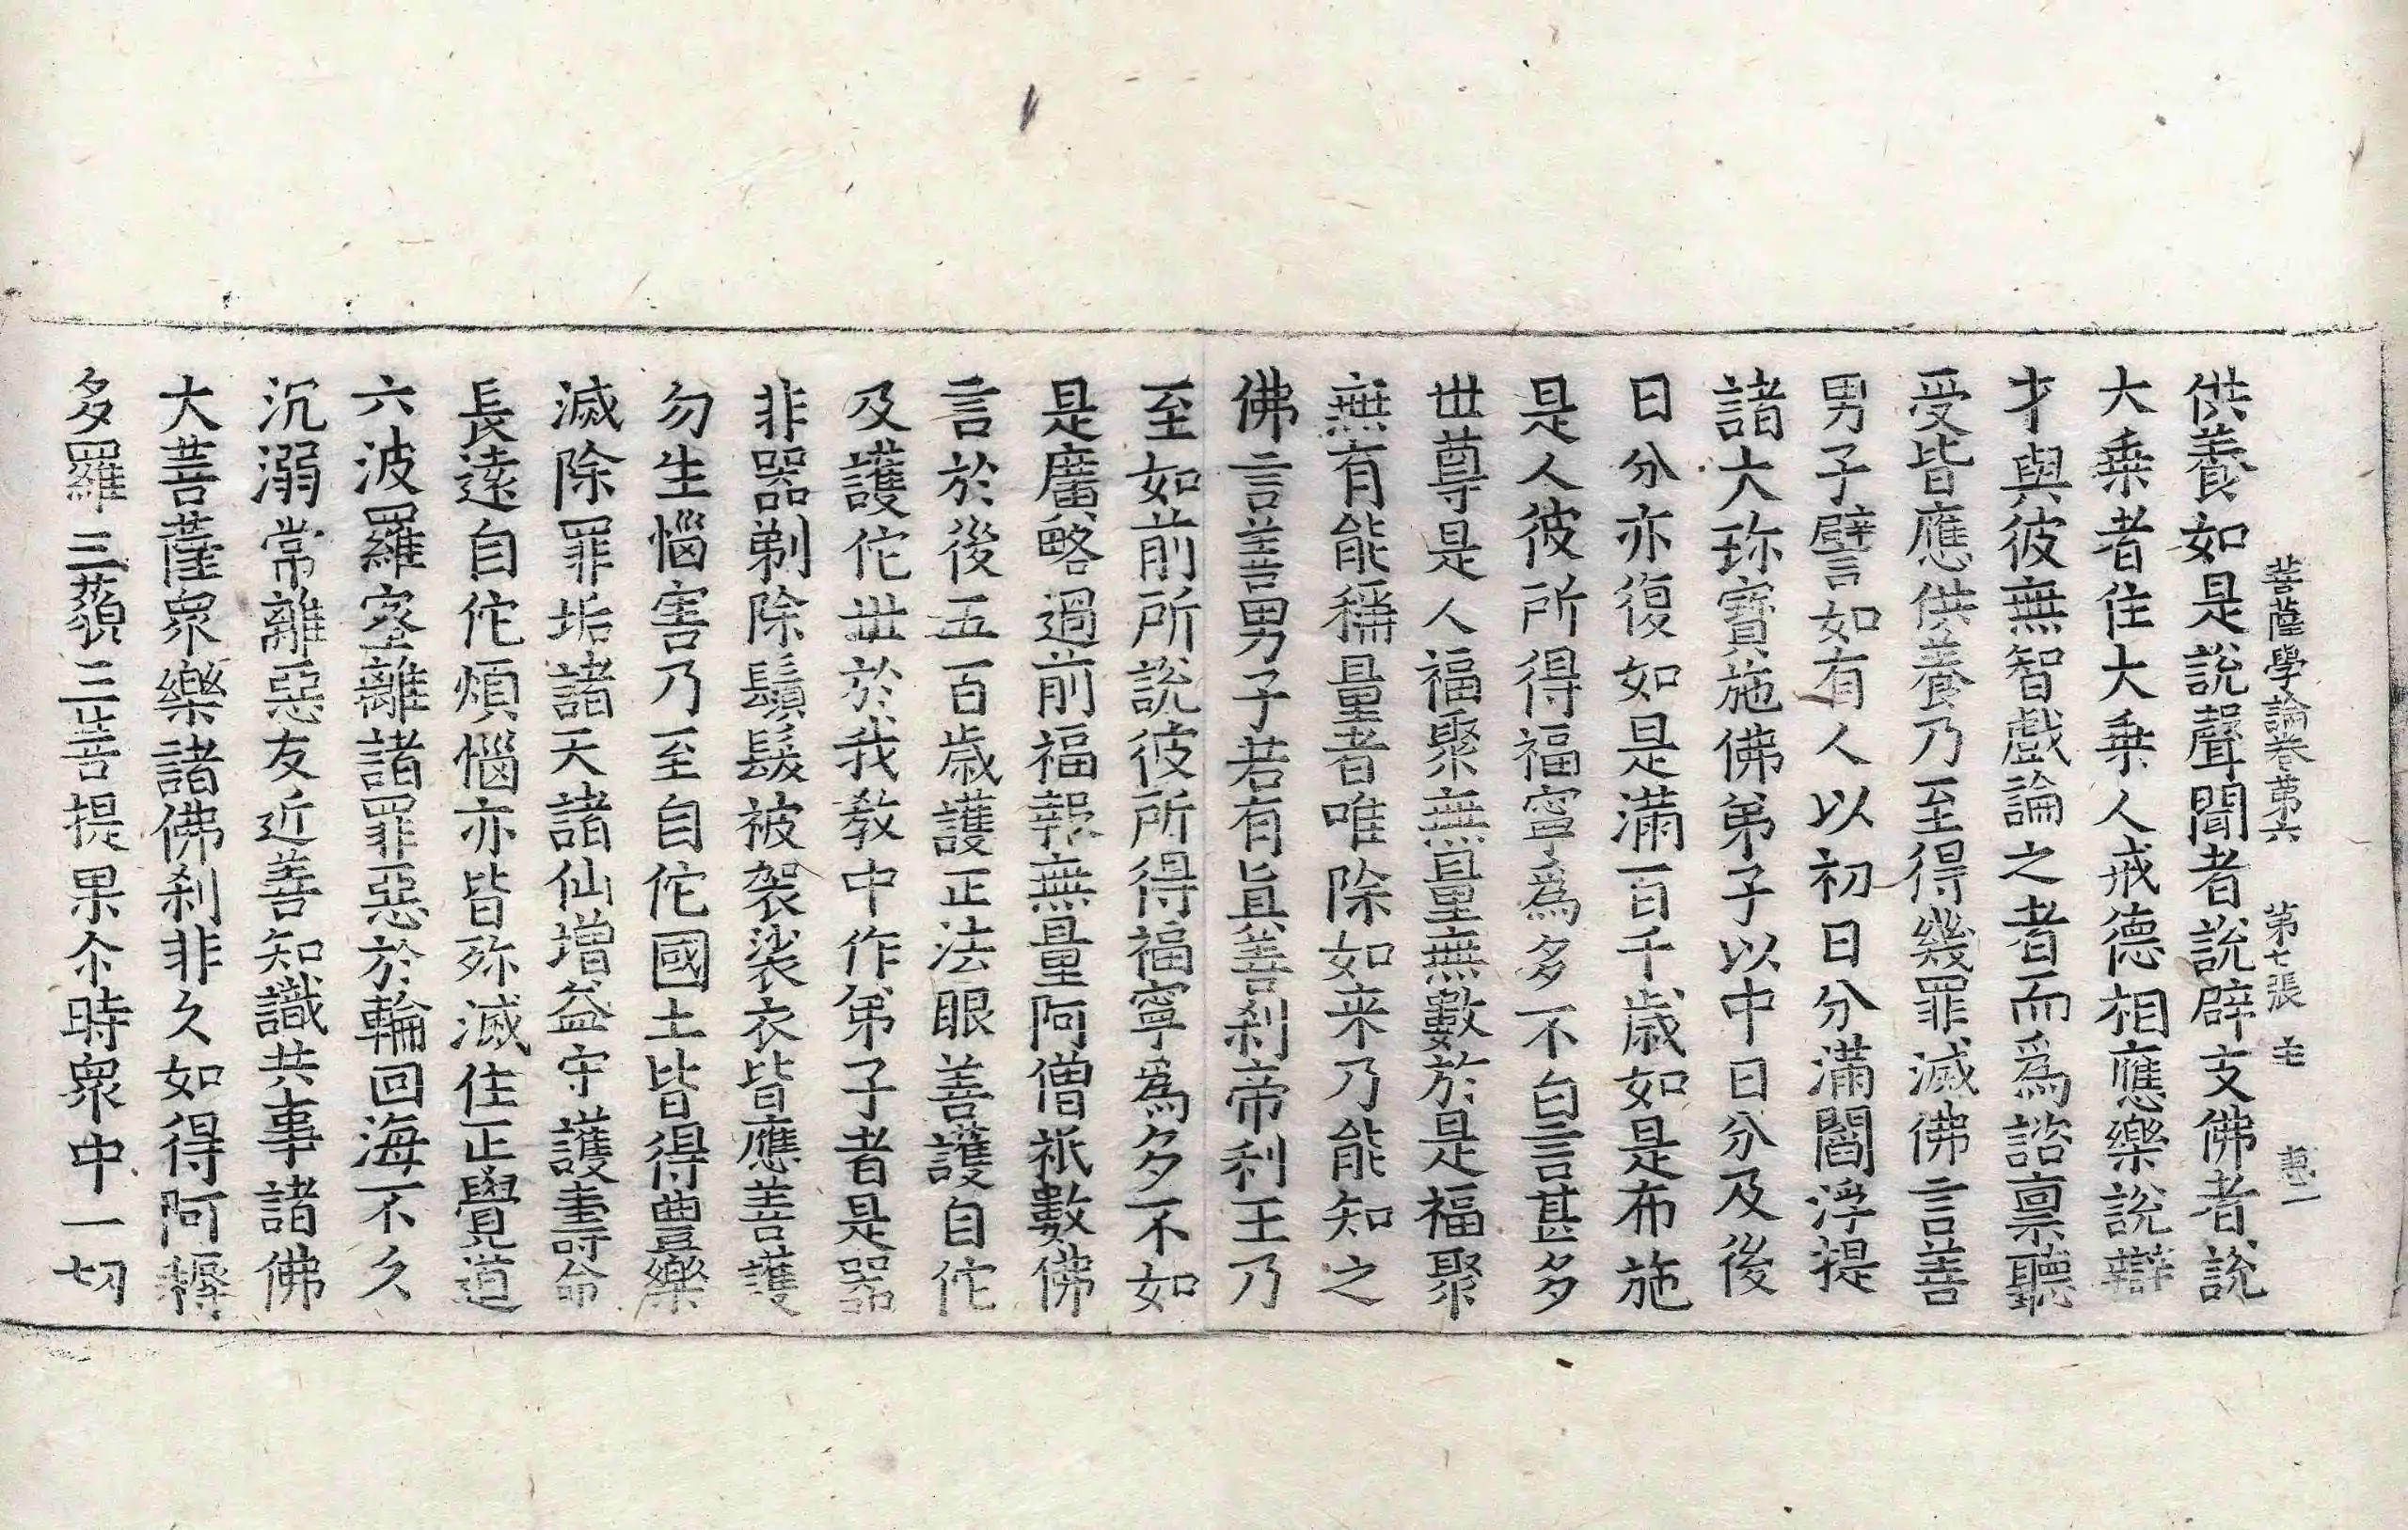 供養如是說聲聞者說辟支佛者說
大乗者住大乗人戒德相應樂說辯
才與彼無智戲論之者而爲諮禀聽
受皆應供養乃至得幾罪滅佛言善
男子譬如有人以初日分滿閻浮提
諸大珎寶施佛弟子以中日分及後
日分亦復如是滿百千歳如是布施
是人彼所得福寧爲多不白言甚多
世尊是人福聚無量無數於是福聚
無有能稱量者唯除如来乃能知之
佛言善男子若有眞善刹帝利王乃
至如前所說彼所得福寧爲多不如
是廣略過前福報無量阿僧祇數佛
言於後五百歳護正法眼善護自佗
及護佗世於我教中作弟子者是器
非器剃除鬚髮被袈裟衣皆應善護
勿生惱害乃至自佗國土皆得豐樂
滅除罪垢諸天諸仙增益守護壽命
長遠自佗煩惱亦皆殄滅住正覺道
六波羅蜜離諸罪惡於輪回海不久
沉溺常離惡友近善知識共事諸佛
大菩薩衆樂諸佛刹非久如得阿耨
多羅三藐三菩提果尒時衆中一切
菩薩學論卷第六　第七張　主